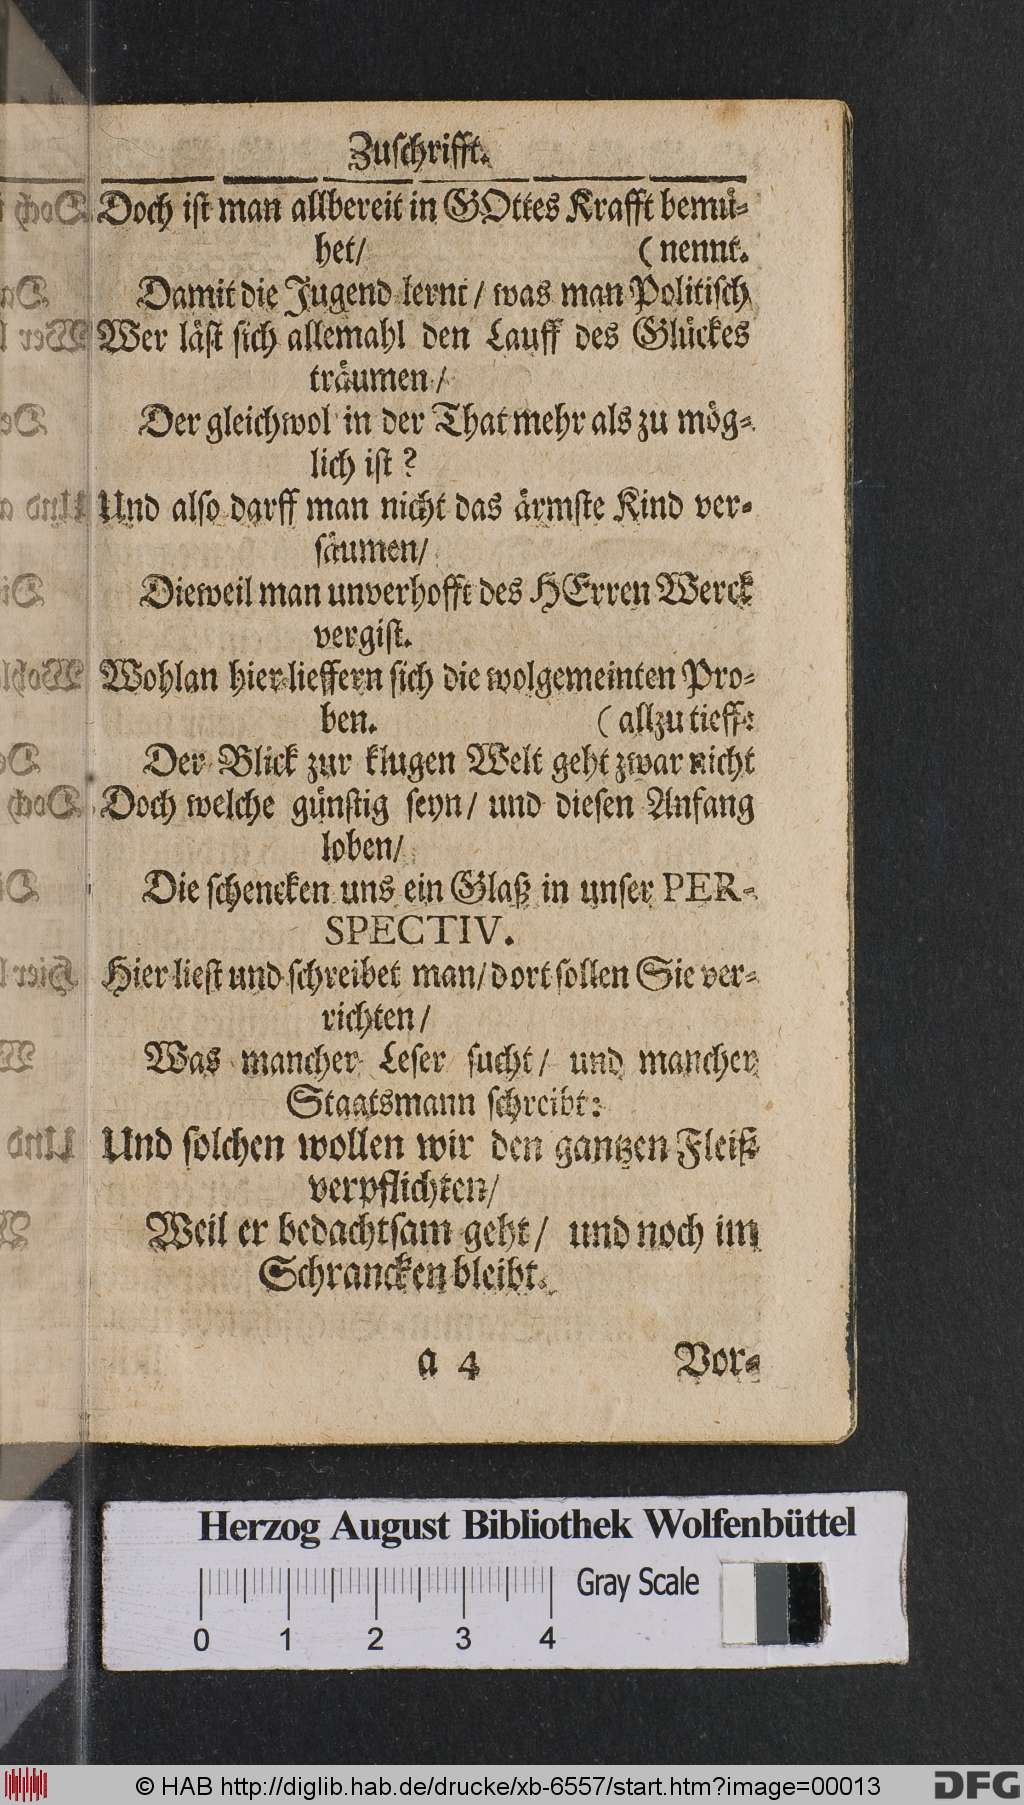 Zuschrifft.
Doch ist man allbereit in GOttes Krafft bemü-
het/ (nennt.
Damit die Jugend lernt / was man Politisch
Wer läst sich allemahl den Lauff des Glückes
träumen /
Der gleichwol in der That mehr als zu mög-
lich ist ?
Und also darff man nicht das ärmste Kind ver-
säumen/
Dieweil man unverhofft des HErren Werck
vergist.
Wohlan hier lieffern sich die wolgemeinten Pro-
ben. (allzu tieff:
Der Blick zur klugen Welt geht zwar nicht
Doch welche günstig seyn / und diesen Anfang
loben/
Die schencken uns ein Glaß in unser PER-
SPECTIV.
Hier liest und schreibet man/ dort sollen Sie ver-
richten /
Was mancher Leser sucht / und mancher
Staatsmann schreibt:
Und solchen wollen wir den gantzen Fleiß
verpflichten/
Weil er bedachtsam geht / und noch im
Schrancken bleibt.
a 4 Vor-
Herzog August Bibliothek Wolfenbüttel
Gray Scale
0 1 2 3 4
© HAB http://diglib.hab.de/drucke/xb-6557/start.htm?image=00013
DFG